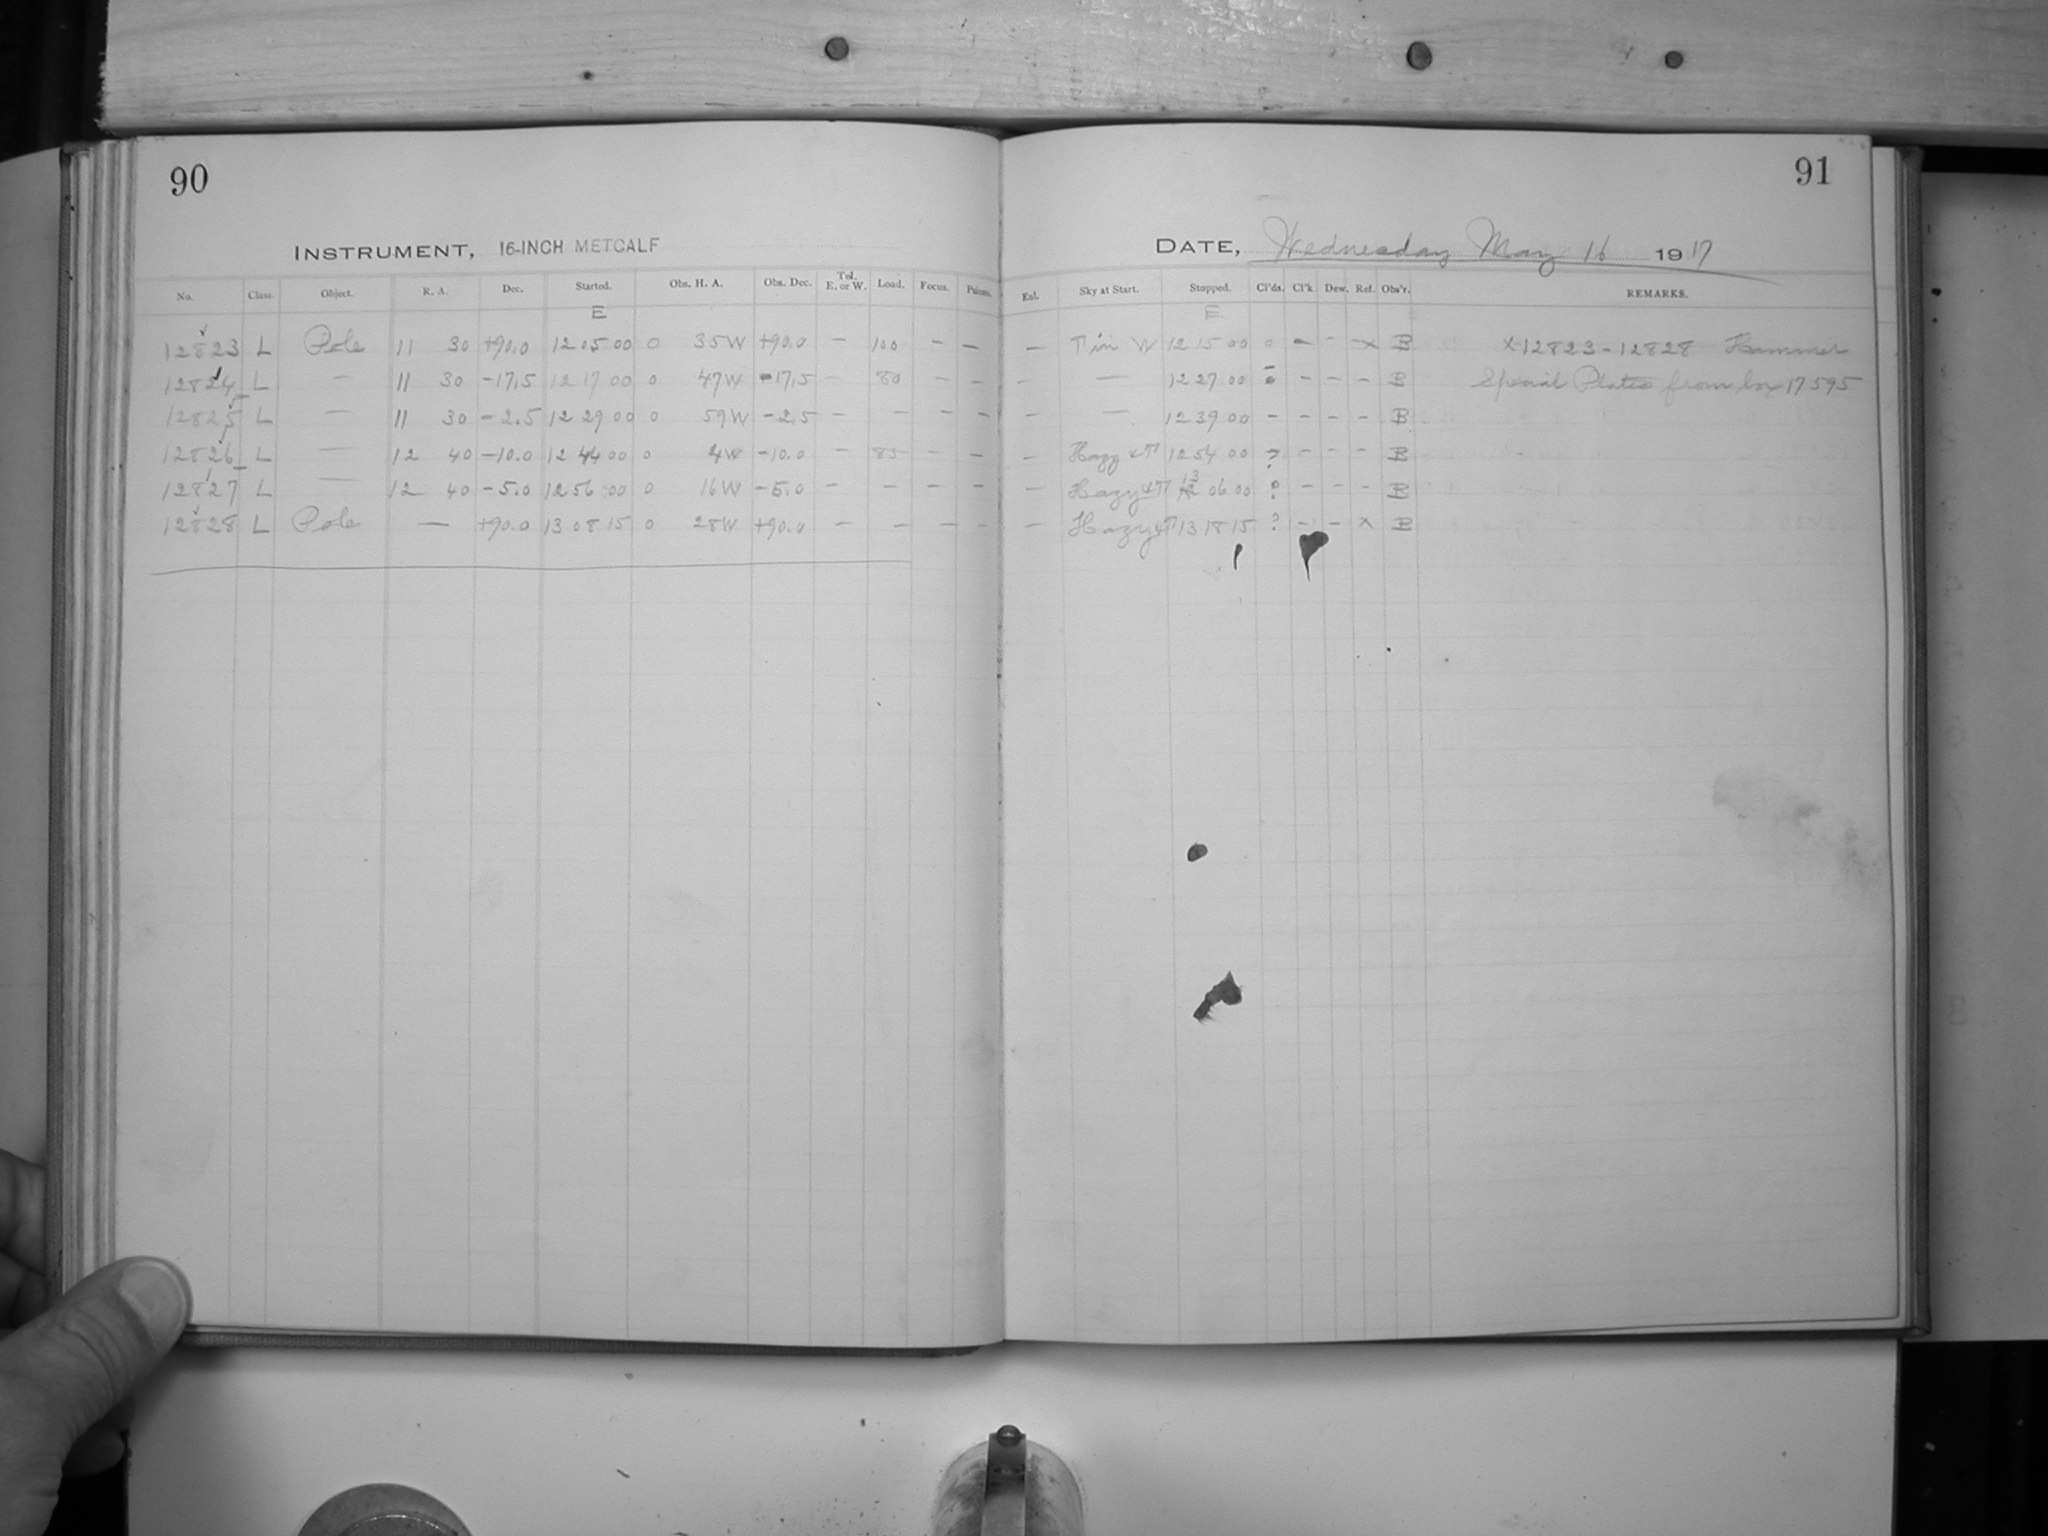 90
INSTRUMENT, 16-INCH METCALF
No. Class. Object. R. A. Dec. Started. Obs. H. A. Obs. Dec. Tel. E. or W. Load. Focus.
E
12823 L Pole 11 30 +90.0 12 05 00 0 35W +90.0 — 100 — —
12824 L — 11 30 -17.5 12 17 00 0 47W -17.5 — 80 — —
12825 L — 11 30 -2.5 12 29 00 0 59W -2.5 — — — —
12826 L — 12 40 -10.0 12 44 00 0 4W -10.0 — 85 — —
12827 L — 12 40 -5.0 12 56 00 0 16W -5.0 — — — —
12828 L Pole — +90.0 13 08 15 0 28W +90.0 — — — —
91
DATE, Wednesday May 16 1917
Sky at Start. Stopped. Cl'ds. Cl'k Dew. Ref. Obs'r. REMARKS.
E
— T in W 12 15 00 0 — — X B X-12823-12828 Hummer
— — 12 27 00 — — — B Special Plates from box 17595
— — 12 39 00 — — — — B
— Hazy & T 12 54 00 ? — — — B
— Hazy & T 13 06 00 ? — — — B
— Hazy & T 13 18 15 ? — — X B